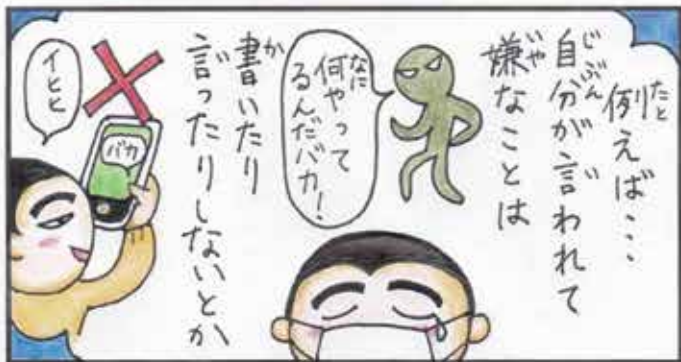 例えば・・・
自分が言われて
嫌なことは
何やって
るんだバカ！
書いたり
言ったりしないとか
バカ
イヒヒ